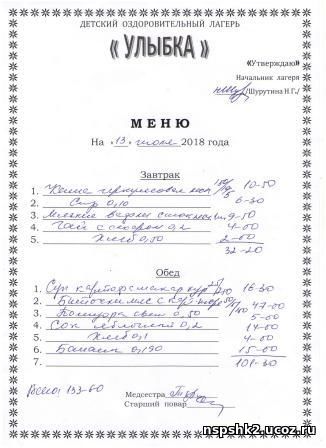 ДЕТСКИЙ ОЗДОРОВИТЕЛЬНЫЙ ЛАГЕРЬ
« УЛЫБКА »
«Утверждаю»
Начальник лагеря
/Шурутина Н.Г./
МЕНЮ
На «13» июня 2018 года
Завтрак
1. Каша геркулесовая мол 10-50
2. Сыр 0,10 6-30
3. 9-50
4. Чай с сахаром 0,2 4-00
5. Хлеб 0,50 2-00
32-20
Обед
1. Суп картоф с макар кур 16-30
2. Биточки мяс с 47-00
3. Помидора свеж 0,50 5-00
4. Сок яблочный 0,2 14-00
5. Хлеб 0,1 4-00
6. Бананы 0,190 15-00
7. 101-30
Всего: 133-60
Медсестра
Старший повар
nspshk2.ucoz.ru